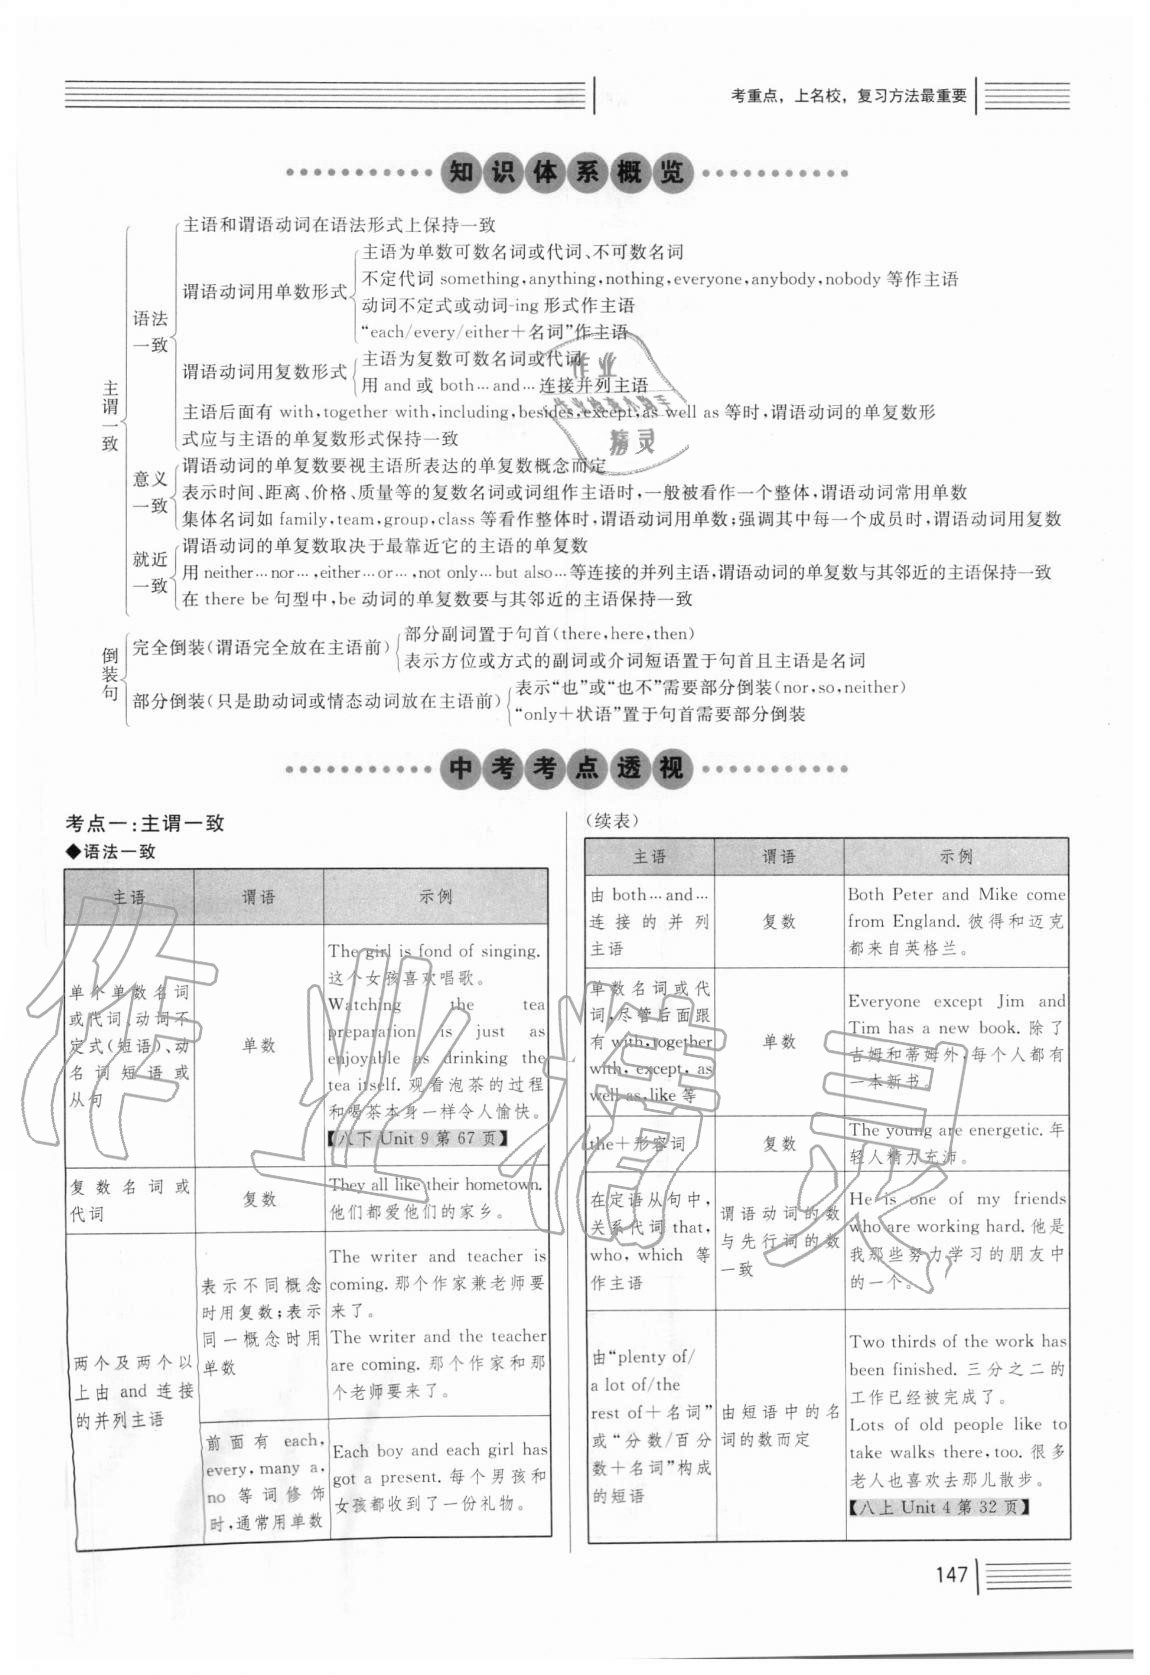 考重点，上名校，复习方法最重要
知识体系概览
主谓一致
语法一致
主语和谓语动词在语法形式上保持一致
谓语动词用单数形式
主语为单数可数名词或代词、不可数名词
不定代词 something,anything,nothing,everyone,anybody,nobody 等作主语
动词不定式或动词-ing 形式作主语
“each/every/either＋名词”作主语
谓语动词用复数形式
主语为复数可数名词或代词
用 and 或 both…and…连接并列主语
主语后面有 with,together with,including,besides,except,as well as 等时,谓语动词的单复数形
式应与主语的单复数形式保持一致
意义一致
谓语动词的单复数要视主语所表达的单复数概念而定
表示时间、距离、价格、质量等的复数名词或词组作主语时,一般被看作一个整体,谓语动词常用单数
集体名词如 family,team,group,class 等看作整体时,谓语动词用单数;强调其中每一个成员时,谓语动词用复数
就近一致
谓语动词的单复数取决于最靠近它的主语的单复数
用 neither…nor…,either…or…,not only…but also…等连接的并列主语,谓语动词的单复数与其邻近的主语保持一致
在 there be 句型中,be 动词的单复数要与其邻近的主语保持一致
倒装句
完全倒装(谓语完全放在主语前)
部分副词置于句首(there,here,then)
表示方位或方式的副词或介词短语置于句首且主语是名词
部分倒装(只是助动词或情态动词放在主语前)
表示“也”或“也不”需要部分倒装(nor,so,neither)
“only＋状语”置于句首需要部分倒装
中考考点透视
考点一:主谓一致
◆语法一致
主语 谓语 示例
单个单数名词
或代词、动词不
定式(短语)、动
名词短语或
从句
单数
The girl is fond of singing.
这个女孩喜欢唱歌。
Watching the tea
preparation is just as
enjoyable as drinking the
tea itself. 观看泡茶的过程
和喝茶本身一样令人愉快。
【八下 Unit 9 第 67 页】
复数名词或
代词
复数
They all like their hometown.
他们都爱他们的家乡。
两个及两个以
上由 and 连接
的并列主语
表示不同概念
时用复数;表示
同一概念时用
单数
The writer and teacher is
coming. 那个作家兼老师要
来了。
The writer and the teacher
are coming. 那个作家和那
个老师要来了。
前面有 each,
every, many a,
no 等词修饰
时,通常用单数
Each boy and each girl has
got a present. 每个男孩和
女孩都收到了一份礼物。
(续表)
主语 谓语 示例
由 both…and…
连接的并列
主语
复数
Both Peter and Mike come
from England. 彼得和迈克
都来自英格兰。
单数名词或代
词,尽管后面跟
有 with,together
with, except, as
well as,like 等
单数
Everyone except Jim and
Tim has a new book. 除了
吉姆和蒂姆外,每个人都有
一本新书。
the＋形容词
复数
The young are energetic. 年
轻人精力充沛。
在定语从句中,
关系代词 that,
who, which 等
作主语
谓语动词的数
与先行词的数
一致
He is one of my friends
who are working hard. 他是
我那些努力学习的朋友中
的一个。
由“plenty of/
a lot of/the
rest of＋名词”
或“分数/百分
数＋名词”构成
的短语
由短语中的名
词的数而定
Two thirds of the work has
been finished. 三分之二的
工作已经被完成了。
Lots of old people like to
take walks there,too. 很多
老人也喜欢去那儿散步。
【八上 Unit 4 第 32 页】
147
作业精灵